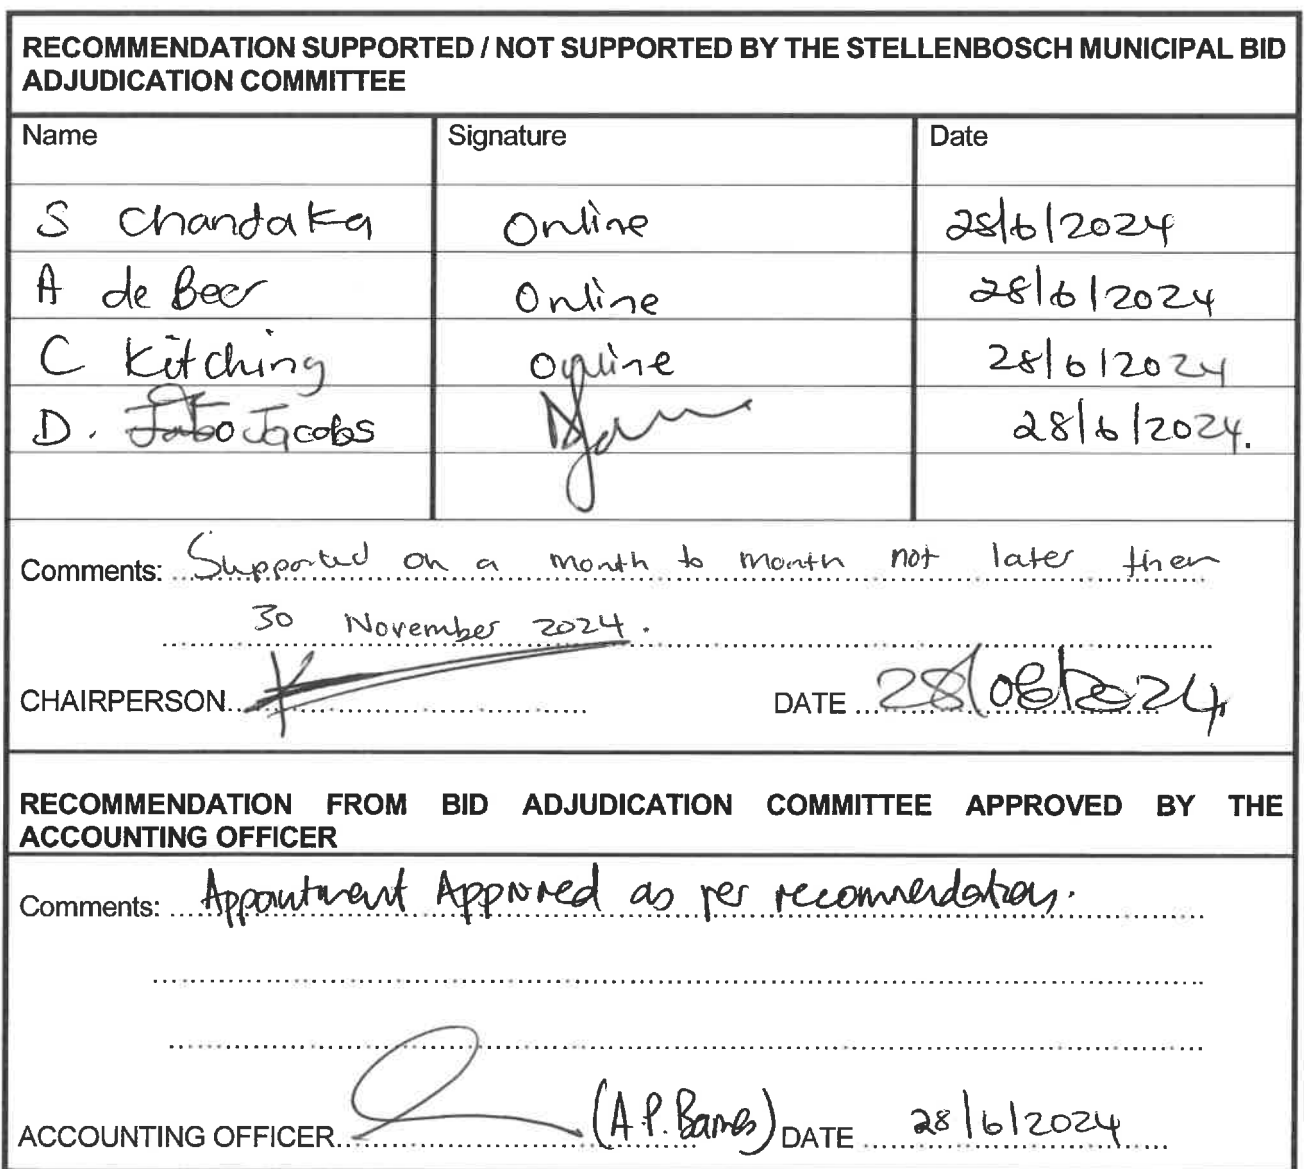 RECOMMENDATION SUPPORTED / NOT SUPPORTED BY THE STELLENBOSCH MUNICIPAL BID
ADJUDICATION COMMITTEE
Name Signature Date
S Chandaka Online 28/6/2024
A de Beer Online 28/6/2024
C Kitching Online 28/6/2024
D. Jacobs 28/6/2024.
Comments: Supported on a month to month not later then
30 November 2024.
CHAIRPERSON DATE 28/06/2024
RECOMMENDATION FROM BID ADJUDICATION COMMITTEE APPROVED BY THE
ACCOUNTING OFFICER
Comments: Appointment Approved as per recommendation.
ACCOUNTING OFFICER (A.P. Barnes) DATE 28/6/2024